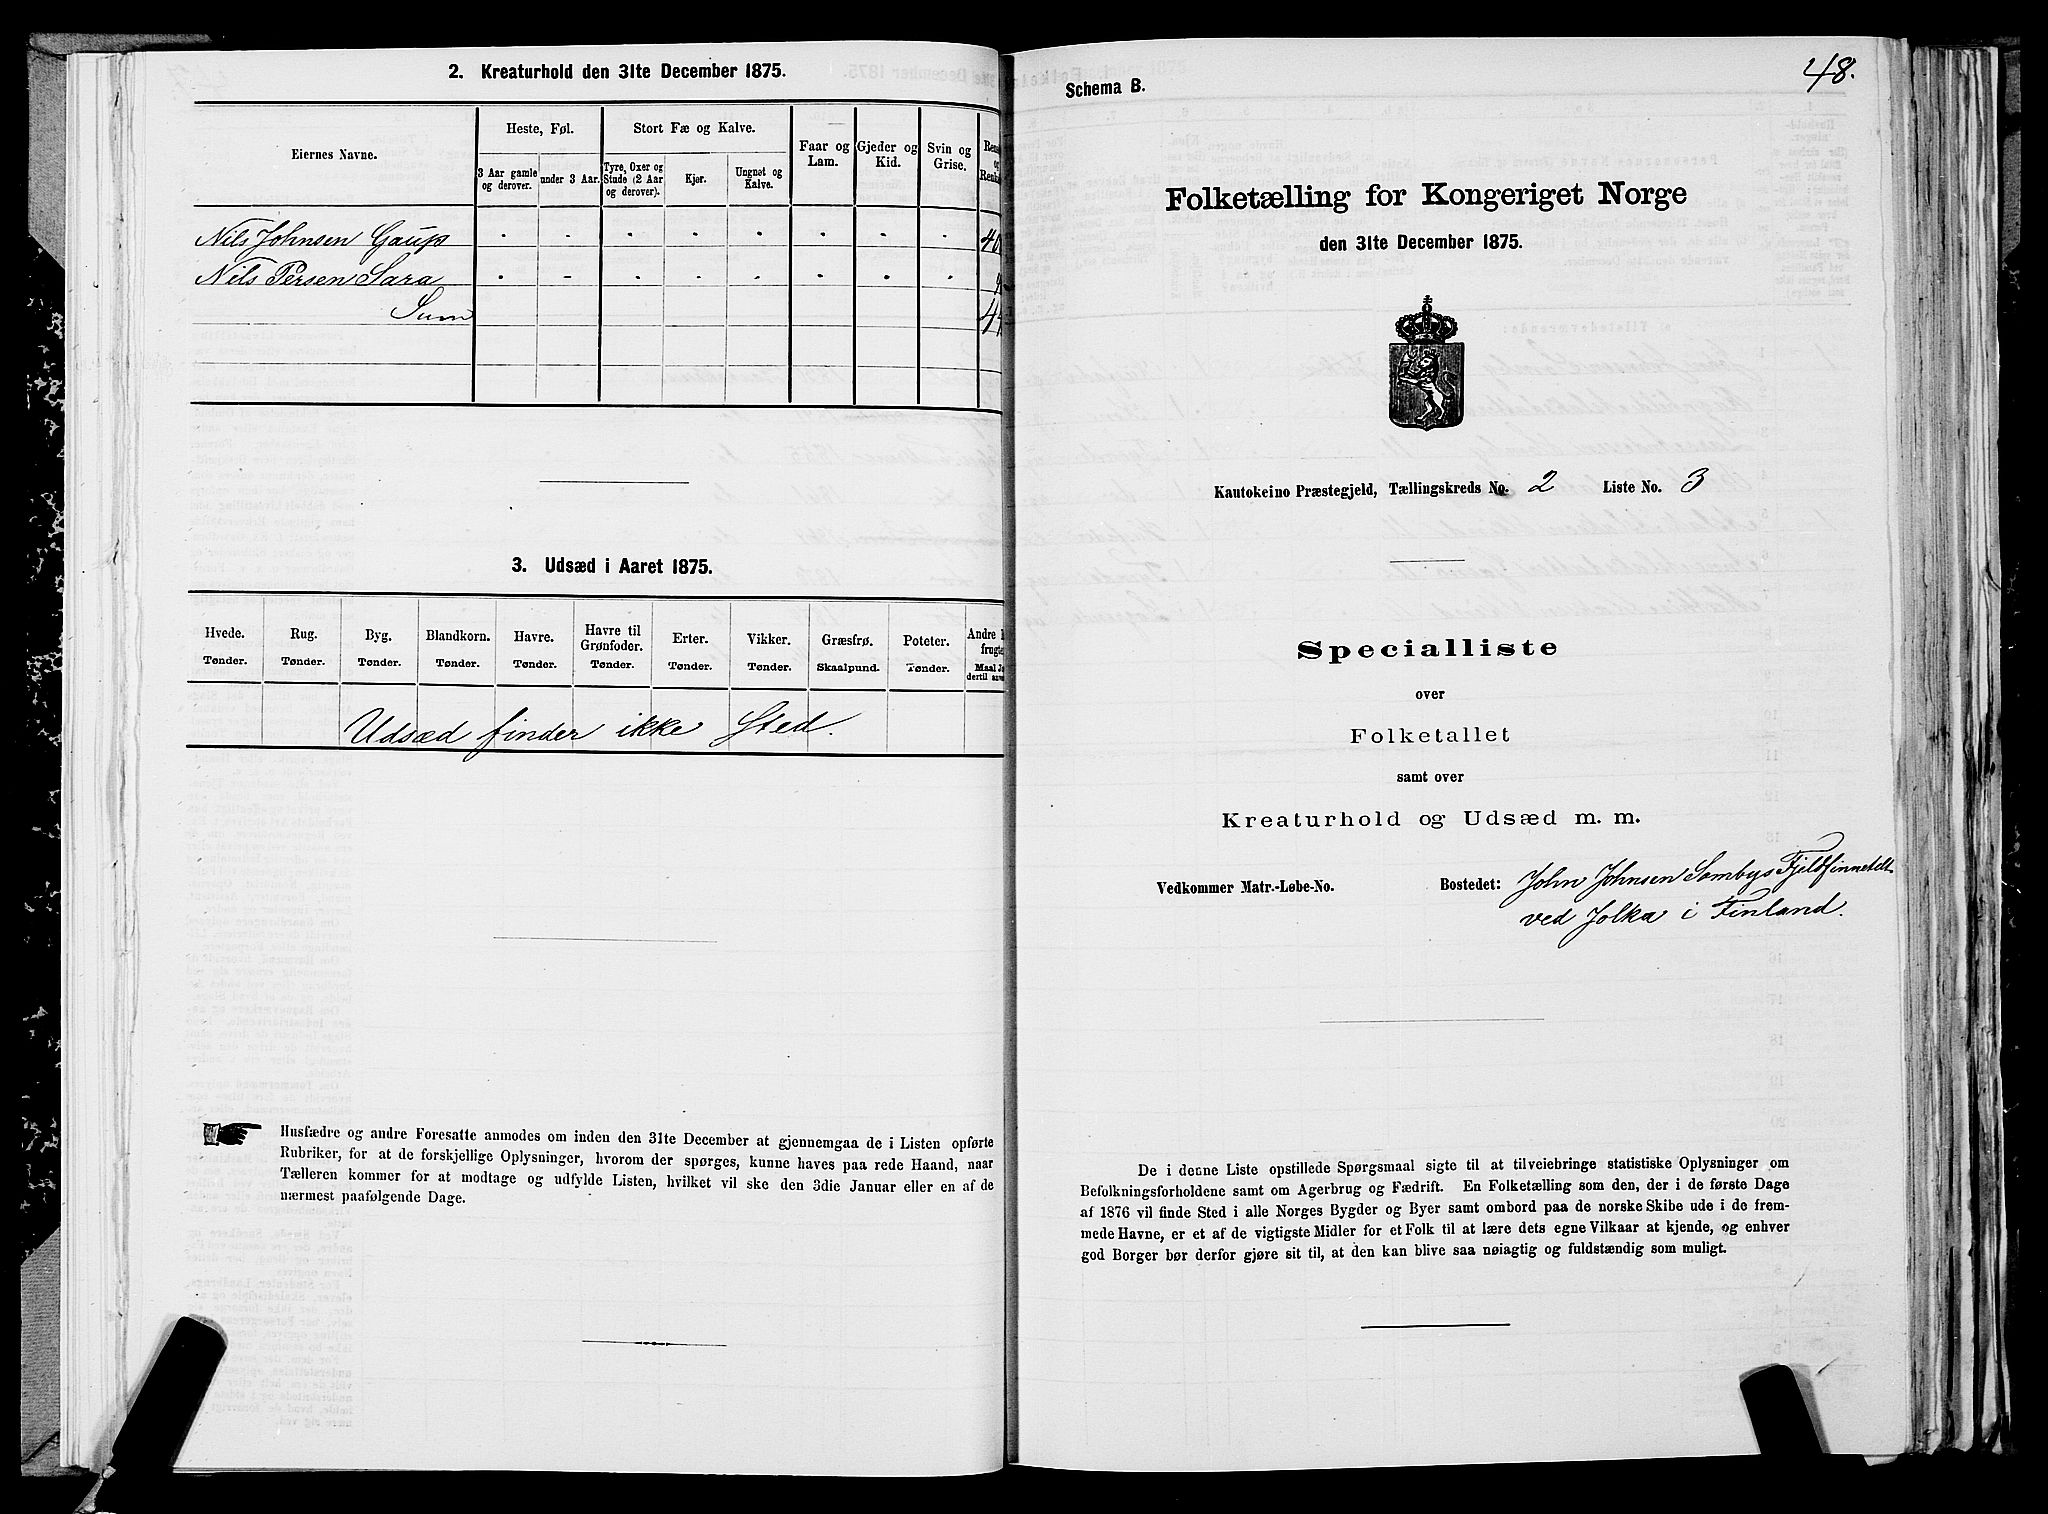 2. Kreaturhold den 31te December 1875.
Eiernes Navne.
Heste, Føl.
Stort Fæ og Kalve.
Faar og Lam.
Gjeder og Kid.
Svin og Grise.
3 Aar gamle og derover.
under 3 Aar.
Tyre, Oxer og Stude (2 Aar og derover).
Kjør.
Ungnet og Kalve.
Nils Johnsen Gaup
Nils Persen Sara
Sum
3. Udsæd i Aaret 1875.
Hvede. Tønder.
Rug. Tønder.
Byg. Tønder.
Blandkorn. Tønder.
Havre. Tønder.
Havre til Grønfoder. Tønder.
Erter. Tønder.
Vikker. Tønder.
Græsfrø. Skaalpund.
Poteter. Tønder.
Andre
Udsæd finder ikke Sted.
Husfædre og andre Foresatte anmodes om inden den 31te December at gjennemgaa de i Listen opførte
Rubriker, for at de forskjellige Oplysninger, hvorom der spørges, kunne haves paa rede Haand, naar
Tælleren kommer for at modtage og udfylde Listen, hvilket vil ske den 3die Januar eller en af de
nærmest paafølgende Dage.
48.
Schema B.
Folketælling for Kongeriget Norge
den 31te December 1875.
Kautokeino Præstegjeld, Tællingskreds No. 2 Liste No. 3
Specialliste
over
Folketallet
samt over
Kreaturhold og Udsæd m. m.
Vedkommer Matr.-Løbe-No. Bostedet: John Johnsen Sombys Fjeldfinnetelt
ved Jolka i Finland.
De i denne Liste opstillede Spørgsmaal sigte til at tilveiebringe statistiske Oplysninger om
Befolkningsforholdene samt om Agerbrug og Fædrift. En Folketælling som den, der i de første Dage
af 1876 vil finde Sted i alle Norges Bygder og Byer samt ombord paa de norske Skibe ude i de frem-
mede Havne, er et af de vigtigste Midler for et Folk til at lære dets egne Vilkaar at kjende, og enhver
god Borger bør derfor gjøre sit til, at den kan blive saa nøiagtig og fuldstændig som muligt.